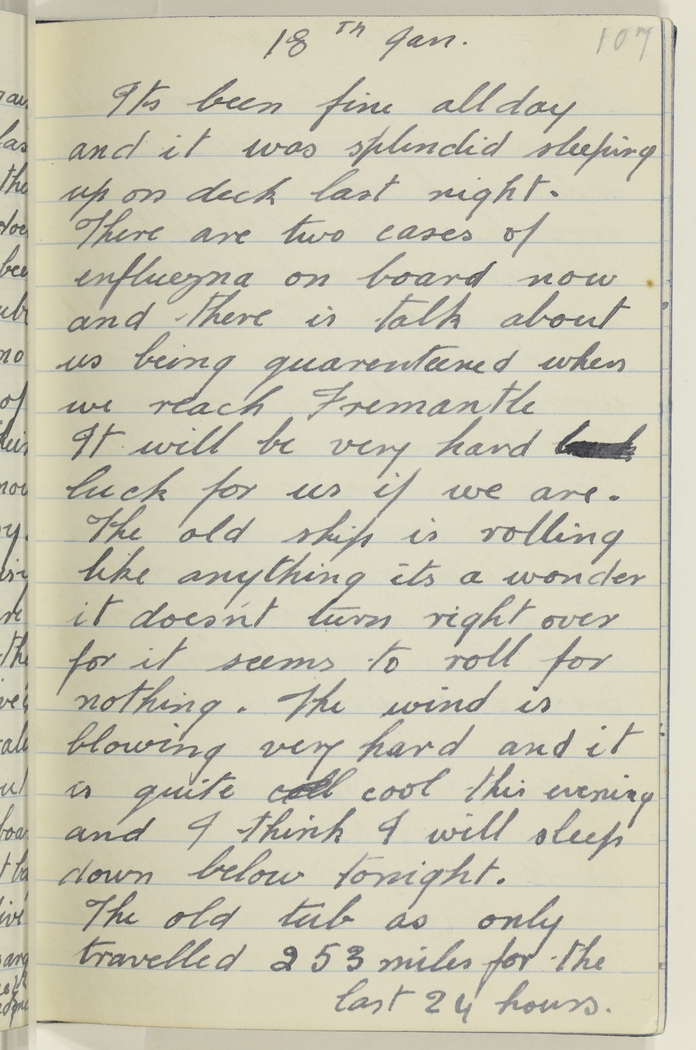 107
18th Jan.
Its been fine all day
and it was splendid sleeping
up on deck last night.
There are two cases of
enfluezna on board now
and there is talk about
us being quarenteened when
we reach Fremantle
It will be very hard
luck for us if we are.
The old ship is rolling
like anything its a wonder
it doesn't turn right over
for it seems to roll for
nothing. The wind is
blowing very hard and it
is quite cool this evening
and I think I will sleep
down below tonight.
The old tub as only
travelled 253 miles for the
last 24 hours.